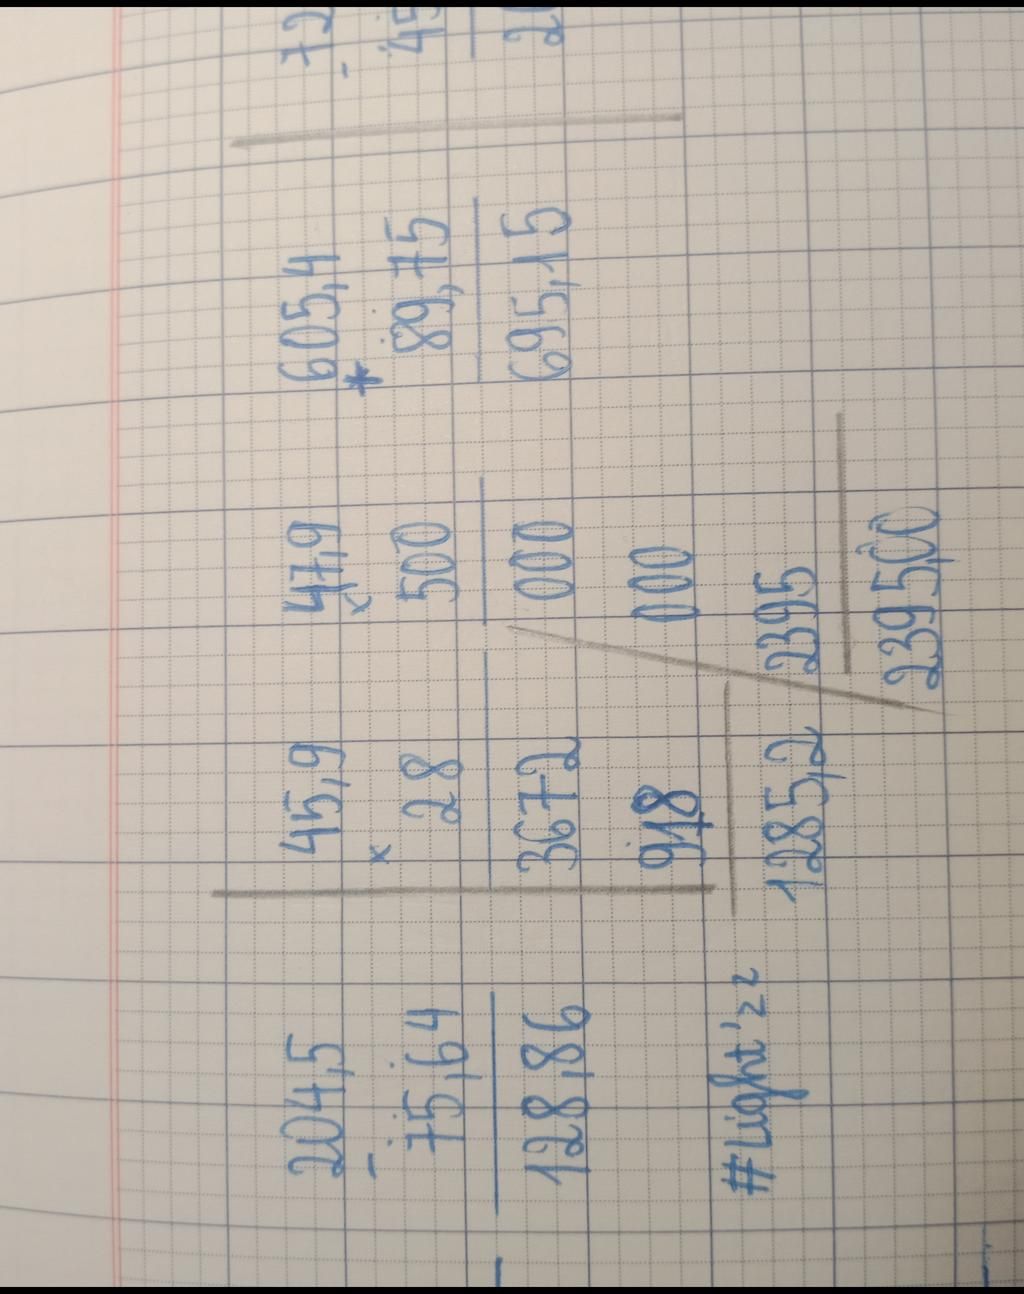 204,5
-
75,64
128,86
#Light'22
45,9
x
28
3672
918
1285,2
47,9
x
500
000
000
2395
23950,0
605,4
+
89,75
695,15
72
-
45